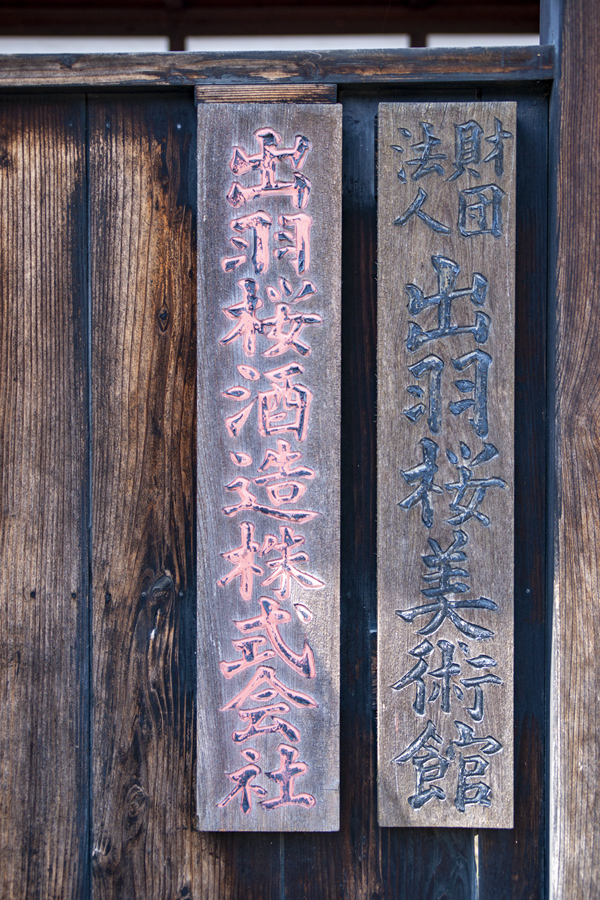 財団
法人
出羽桜美術館
出羽桜酒造株式会社